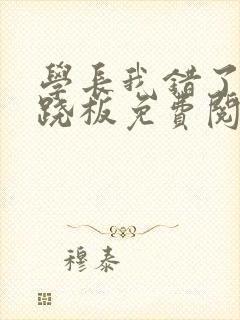 學長我錯了
跷板免費閱
穆泰